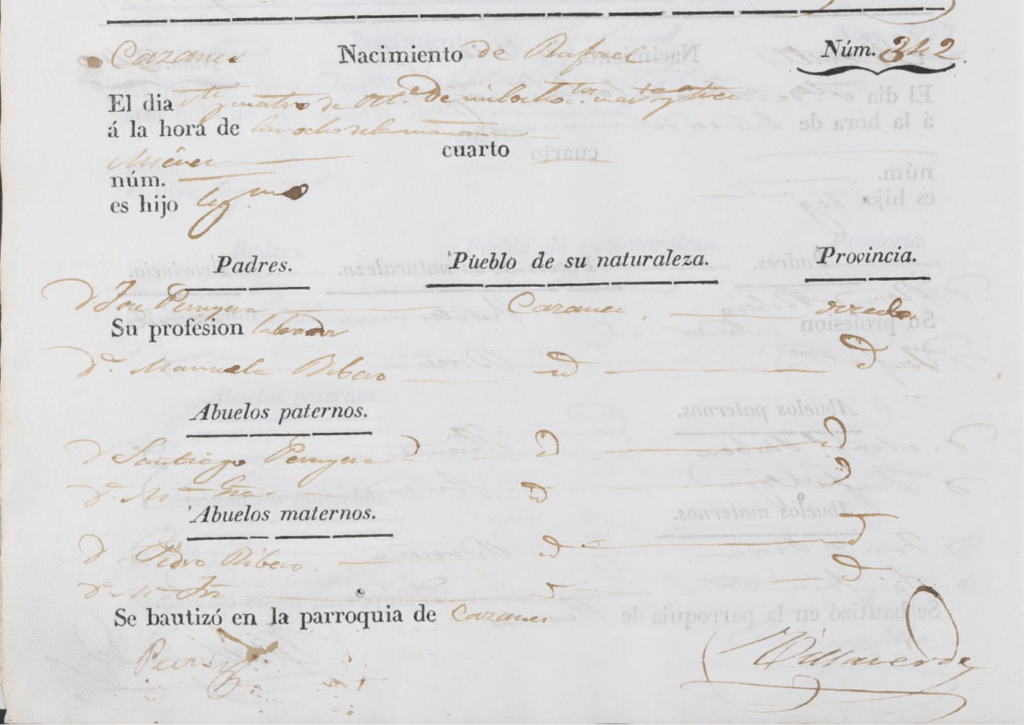 Cazanes Nacimiento de Rafael Núm. 342.
El dia y quatro de Oct.e de mil ocho.tos
á la hora de las ocho de la manana
cuarto
núm.
es hijo leg.mo
Padres. Pueblo de su naturaleza. Provincia.
D José Peruyera Cazanes. Oviedo
Su profesion labrador
D.a Manuela Ribero D D
Abuelos paternos.
D Santiago Peruyera D D D
D.a M
Abuelos maternos.
D Pedro Ribero D D
D.a M
Se bautizó en la parroquia de Cazanes
Villaverde